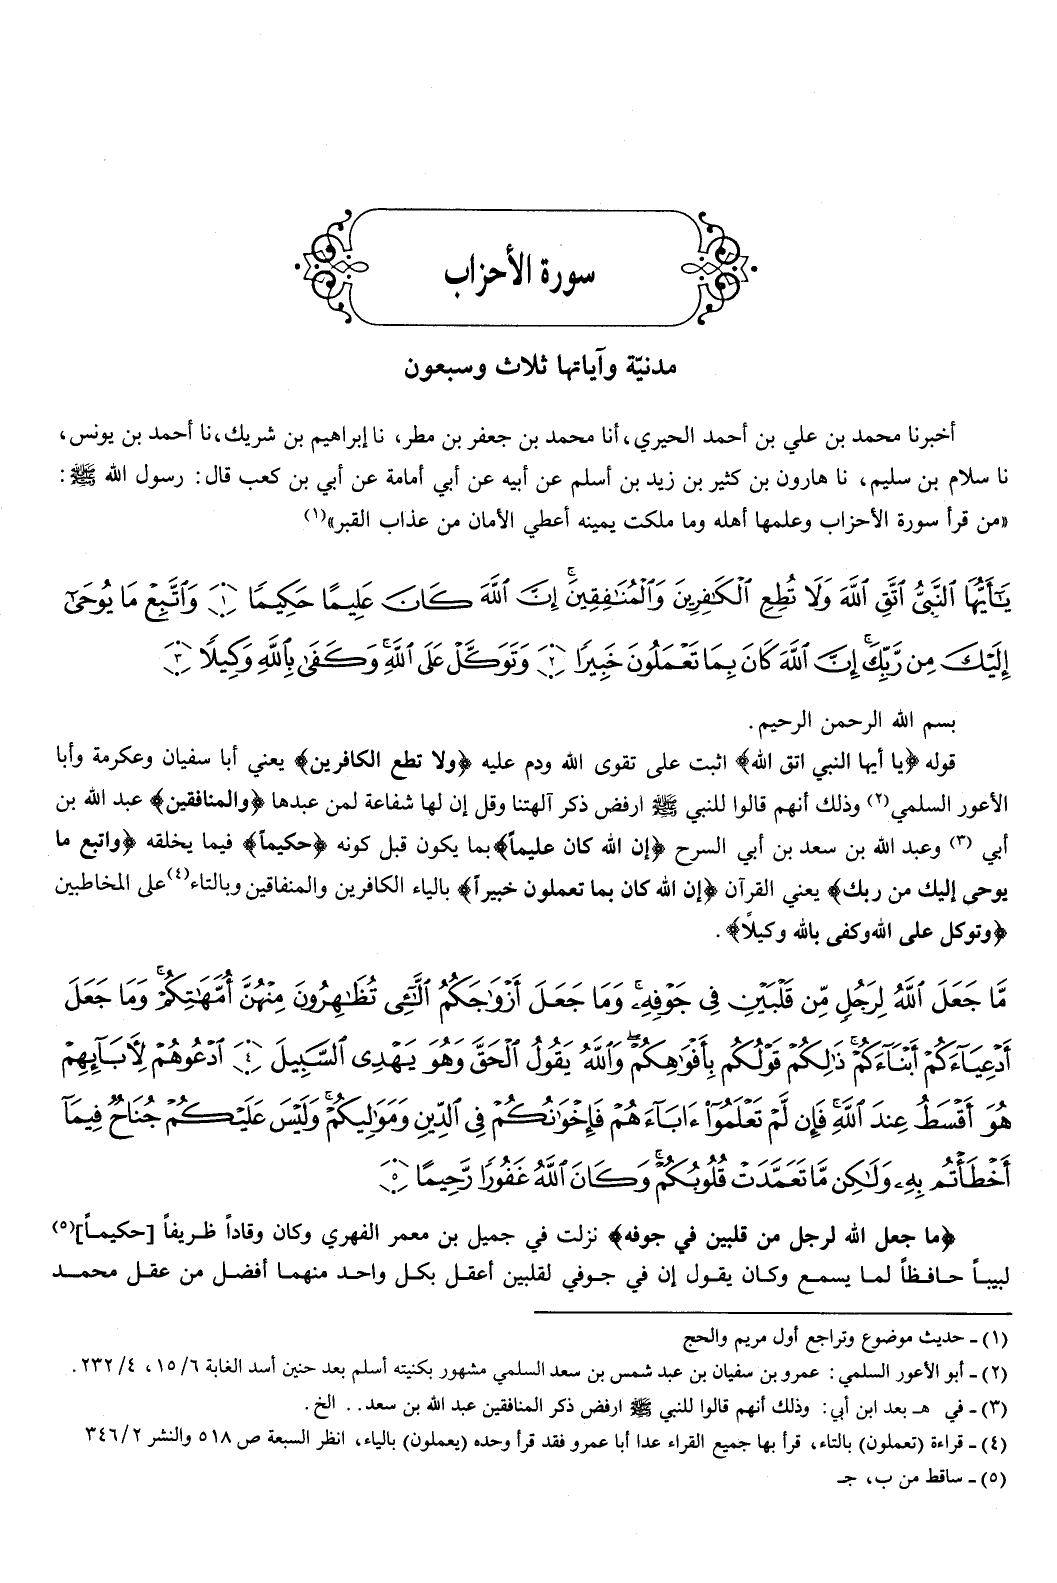 سورة الأحزاب
مدنيّة وآياتها ثلاث وسبعون
أخبرنا محمد بن علي بن أحمد الحيري، أنا محمد بن جعفر بن مطر، نا إبراهيم بن شريك، نا أحمد بن يونس،
نا سلام بن سليم، نا هارون بن كثير بن زيد بن أسلم عن أبيه عن أبي أمامة عن أبي بن كعب قال: رسول الله ﷺ:
«من قرأ سورة الأحزاب وعلمها أهله وما ملكت يمينه أعطي الأمان من عذاب القبر»(١)
يَٰٓأَيُّهَا ٱلنَّبِيُّ ٱتَّقِ ٱللَّهَ وَلَا تُطِعِ ٱلْكَٰفِرِينَ وَٱلْمُنَٰفِقِينَۚ إِنَّ ٱللَّهَ كَانَ عَلِيمًا حَكِيمًا ١ وَٱتَّبِعْ مَا يُوحَىٰٓ
إِلَيْكَ مِن رَّبِّكَۚ إِنَّ ٱللَّهَ كَانَ بِمَا تَعْمَلُونَ خَبِيرًا ٢ وَتَوَكَّلْ عَلَى ٱللَّهِۚ وَكَفَىٰ بِٱللَّهِ وَكِيلًا ٣
بسم الله الرحمن الرحيم.
قوله ﴿يا أيها النبي اتق الله﴾ اثبت على تقوى الله ودم عليه ﴿ولا تطع الكافرين﴾ يعني أبا سفيان وعكرمة وأبا
الأعور السلمي(٢) وذلك أنهم قالوا للنبي ﷺ ارفض ذكر آلهتنا وقل إن لها شفاعة لمن عبدها ﴿والمنافقين﴾ عبد الله بن
أبي (٣) وعبد الله بن سعد بن أبي السرح ﴿إن الله كان عليماً﴾ بما يكون قبل كونه ﴿حكيماً﴾ فيما يخلقه ﴿واتبع ما
يوحى إليك من ربك﴾ يعني القرآن ﴿إن الله كان بما تعملون خبيراً﴾ بالياء الكافرين والمنافقين وبالتاء(٤) على المخاطبين
﴿وتوكل على الله وكفى بالله وكيلاً﴾.
مَّا جَعَلَ ٱللَّهُ لِرَجُلٍ مِّن قَلْبَيْنِ فِي جَوْفِهِۦۚ وَمَا جَعَلَ أَزْوَٰجَكُمُ ٱلَّٰٓـِٔي تُظَٰهِرُونَ مِنْهُنَّ أُمَّهَٰتِكُمْۚ وَمَا جَعَلَ
أَدْعِيَآءَكُمْ أَبْنَآءَكُمْۚ ذَٰلِكُمْ قَوْلُكُم بِأَفْوَٰهِكُمْۖ وَٱللَّهُ يَقُولُ ٱلْحَقَّ وَهُوَ يَهْدِي ٱلسَّبِيلَ ٤ ٱدْعُوهُمْ لِأٓبَآئِهِمْ
هُوَ أَقْسَطُ عِندَ ٱللَّهِۚ فَإِن لَّمْ تَعْلَمُوٓا۟ ءَابَآءَهُمْ فَإِخْوَٰنُكُمْ فِي ٱلدِّينِ وَمَوَٰلِيكُمْۚ وَلَيْسَ عَلَيْكُمْ جُنَاحٌ فِيمَآ
أَخْطَأْتُم بِهِۦ وَلَٰكِن مَّا تَعَمَّدَتْ قُلُوبُكُمْۚ وَكَانَ ٱللَّهُ غَفُورًا رَّحِيمًا ٥
﴿ما جعل الله لرجل من قلبين في جوفه﴾ نزلت في جميل بن معمر الفهري وكان وقاداً ظريفاً [حكيماً](٥)
لبيباً حافظاً لما يسمع وكان يقول إن في جوفي لقلبين أعقل بكل واحد منهما أفضل من عقل محمد
(١) ـ حديث موضوع وتراجع أول مريم والحج
(٢) ـ أبو الأعور السلمي: عمرو بن سفيان بن عبد شمس بن سعد السلمي مشهور بكنيته أسلم بعد حنين أسد الغابة ١٥/٦، ٢٣٢/٤.
(٣) ـ في هـ بعد ابن أبي: وذلك أنهم قالوا للنبي ﷺ ارفض ذكر المنافقين عبد الله بن سعد.. الخ.
(٤) ـ قراءة (تعملون) بالتاء، قرأ بها جميع القراء عدا أبا عمرو فقد قرأ وحده (يعملون) بالياء، انظر السبعة ص ٥١٨ والنشر ٣٤٦/٢
(٥) ـ ساقط من ب، جـ